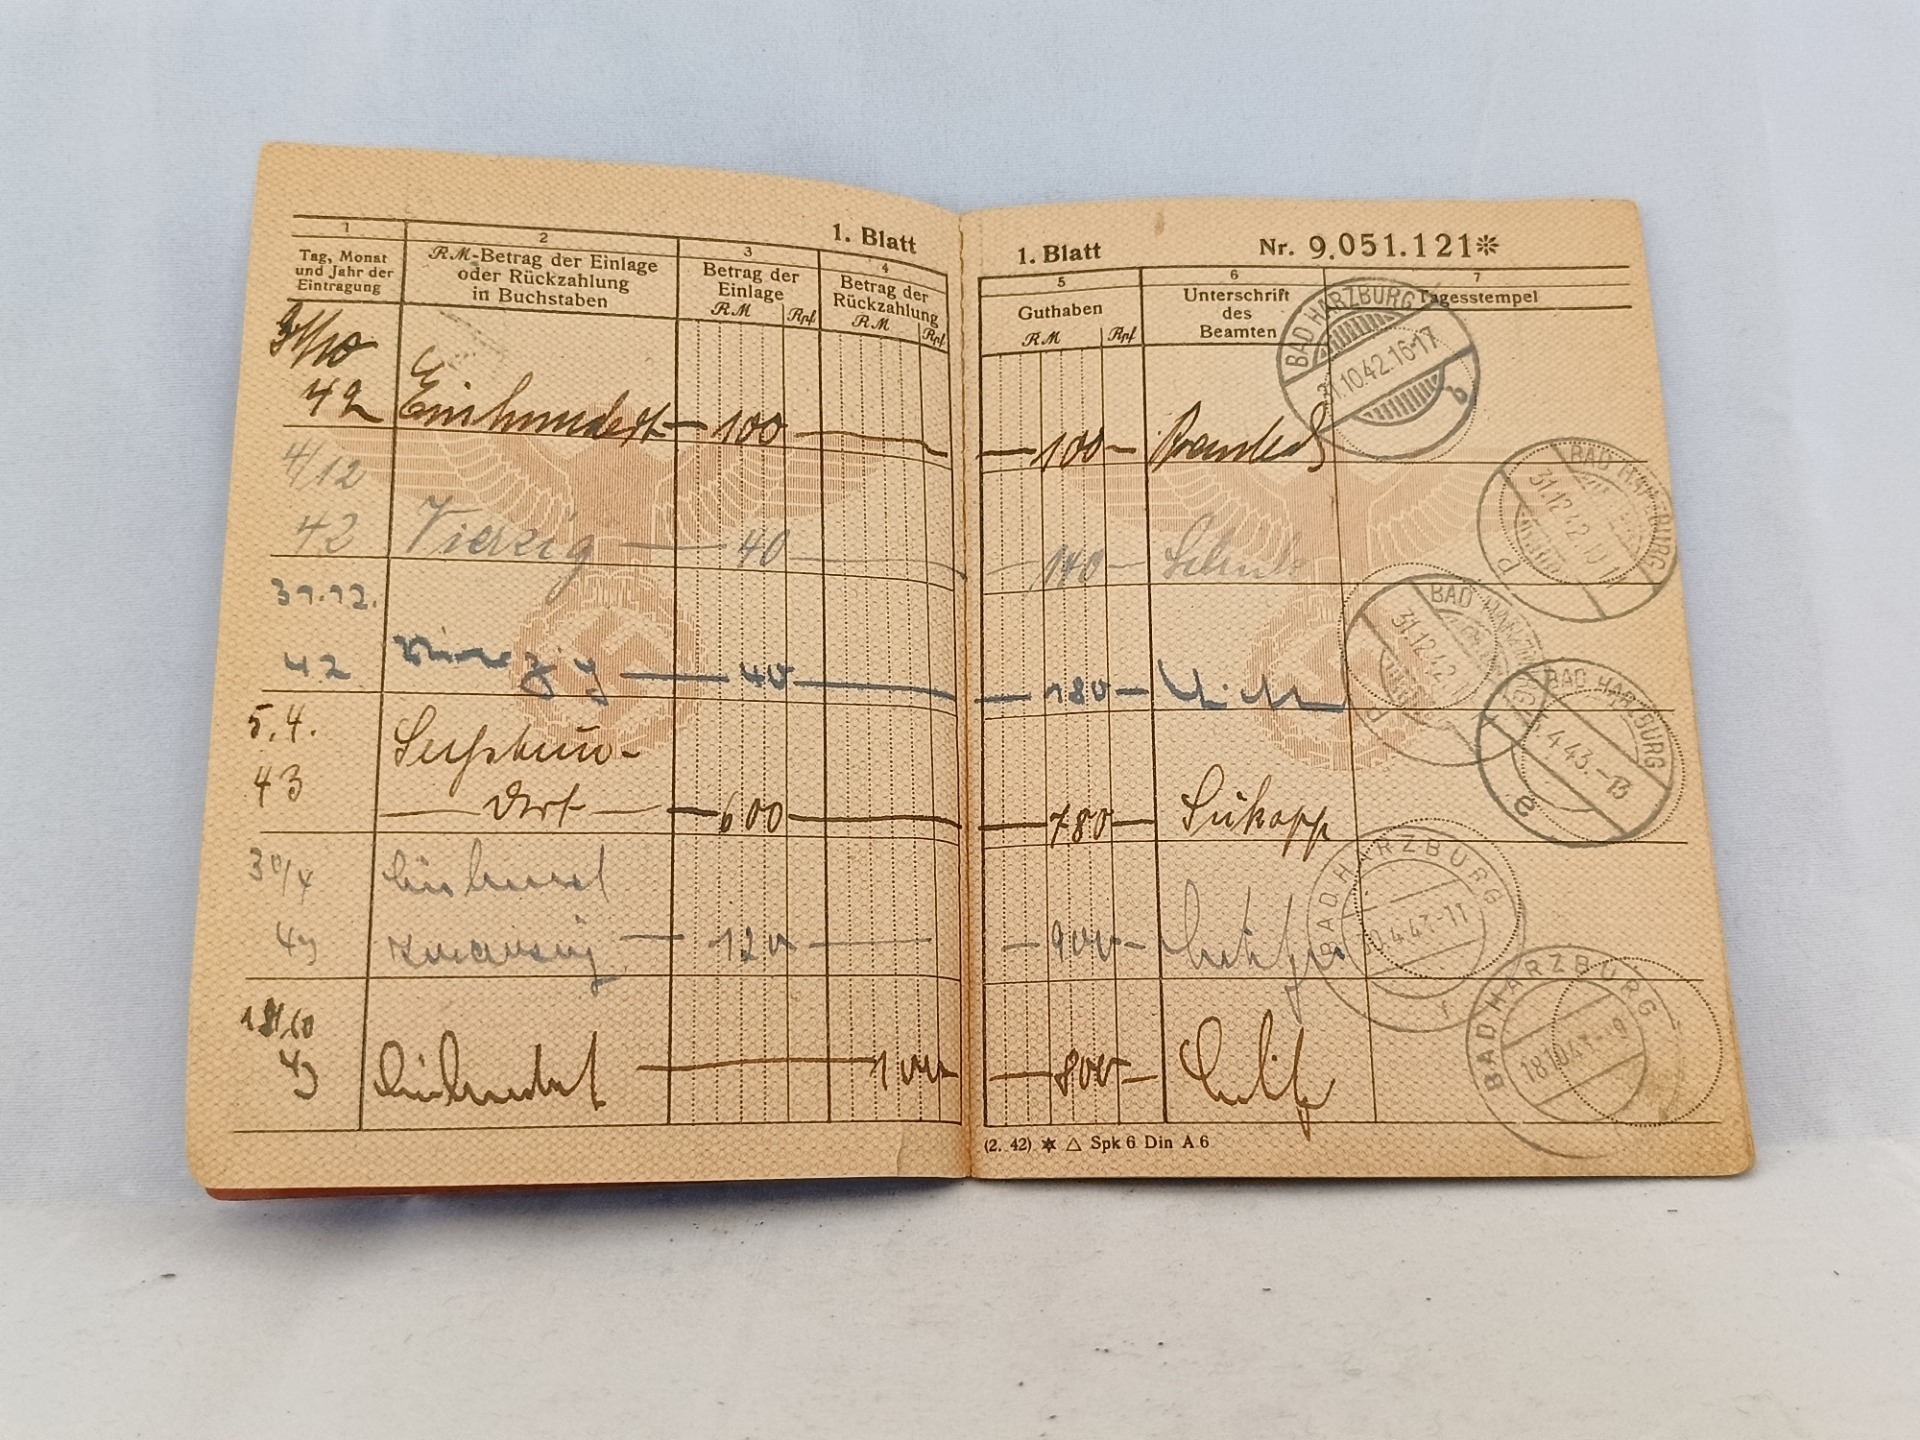 1. Blatt
1
2
3
4
Tag, Monat
und Jahr der
Eintragung
RM-Betrag der Einlage
oder Rückzahlung
in Buchstaben
Betrag der
Einlage
RM Rpf
Betrag der
Rückzahlung
RM Rpf
31/10
42 Einhundert — 100
4/12
42 Vierzig — 40
31.12.
42 Vierzig — 40
5.4. Sechshun-
43 — dert — 600
30/4 Einhund
43 zwanzig — 120
18/10
43 Einhundert — 100
1. Blatt Nr. 9.051.121
5
6
7
Guthaben
RM Rpf
Unterschrift
des
Beamten
Tagesstempel
— 100 —
— 140 —
— 180 —
— 780 —
— 900 —
— 800 —
BAD HARZBURG
31.10.42.16-17
g
BAD HARZBURG
31.12.42
d
BAD HARZ
31.12.42
d
BAD HARZBURG
4.43.-13
e
BAD HARZBURG
.4.43-11
f
BAD HARZBURG
18.10.43
(2. 42) Spk 6 Din A 6